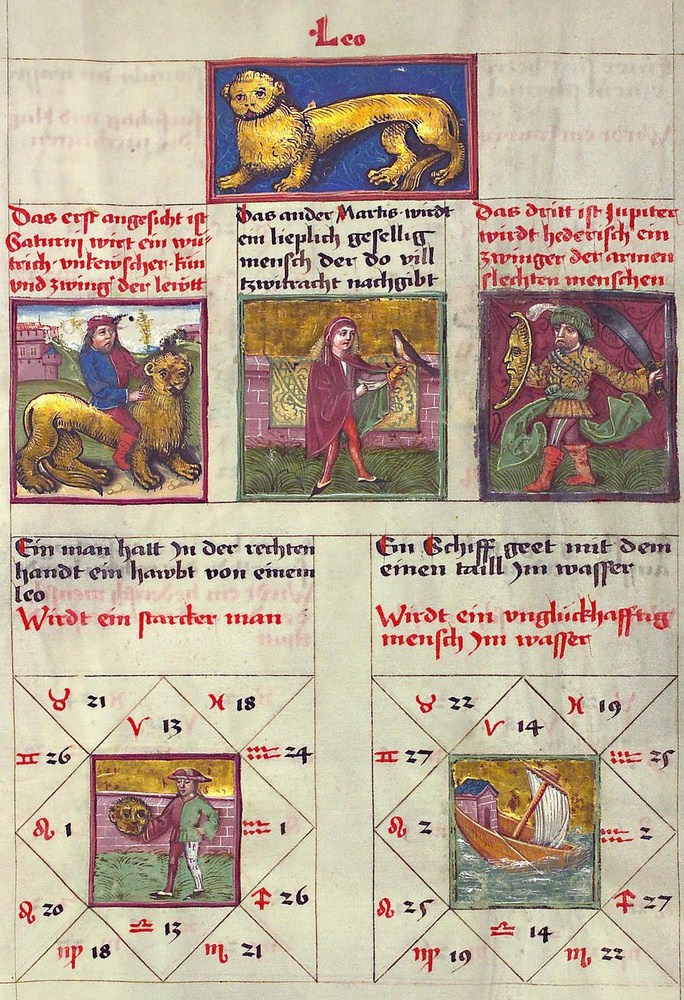 Leo
Das erst angesicht ist
Saturni wirt ein wü-
trich vnkewscher kün
vnd zwing der lewtt
Das ander Martis wirdt
ein lieplich gesellig
mensch der do vill
tzwitracht nachgibt
Das dritt ist Jupiter
wirdt hederisch ein
zwinger der armen
slechten menschen
Ein man halt Jn der rechten
handt ein hawbt von einem
leo
Wirdt ein starcker man
♉ 21
♓ 18
♈ 13
♊ 26
♒ 24
♌ 1
♒ 1
♌ 20
♐ 26
♎ 13
♍ 18
♏ 21
Ein Schiff geet mit dem
einen taill Jm wasser
Wirdt ein vnglückhafftig
mensch Jm wasser
♉ 22
♓ 19
♈ 14
♊ 27
♒ 25
♌ 2
♒ 2
♌ 25
♐ 27
♎ 14
♍ 19
♏ 22